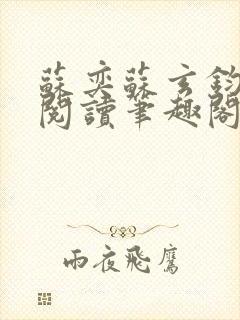 蘇奕蘇玄鈞
閱讀筆趣閣
雨夜飛鷹